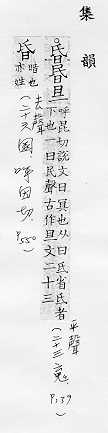 集韻
昬昏旦
呼昆切說文曰冥也从日氐省氐者
下也一曰民聲古作旦文二十三
(平聲二十三䰟 P.139)
昬 暗也亦姓
(去聲二十六圂 呼困切 P.550)